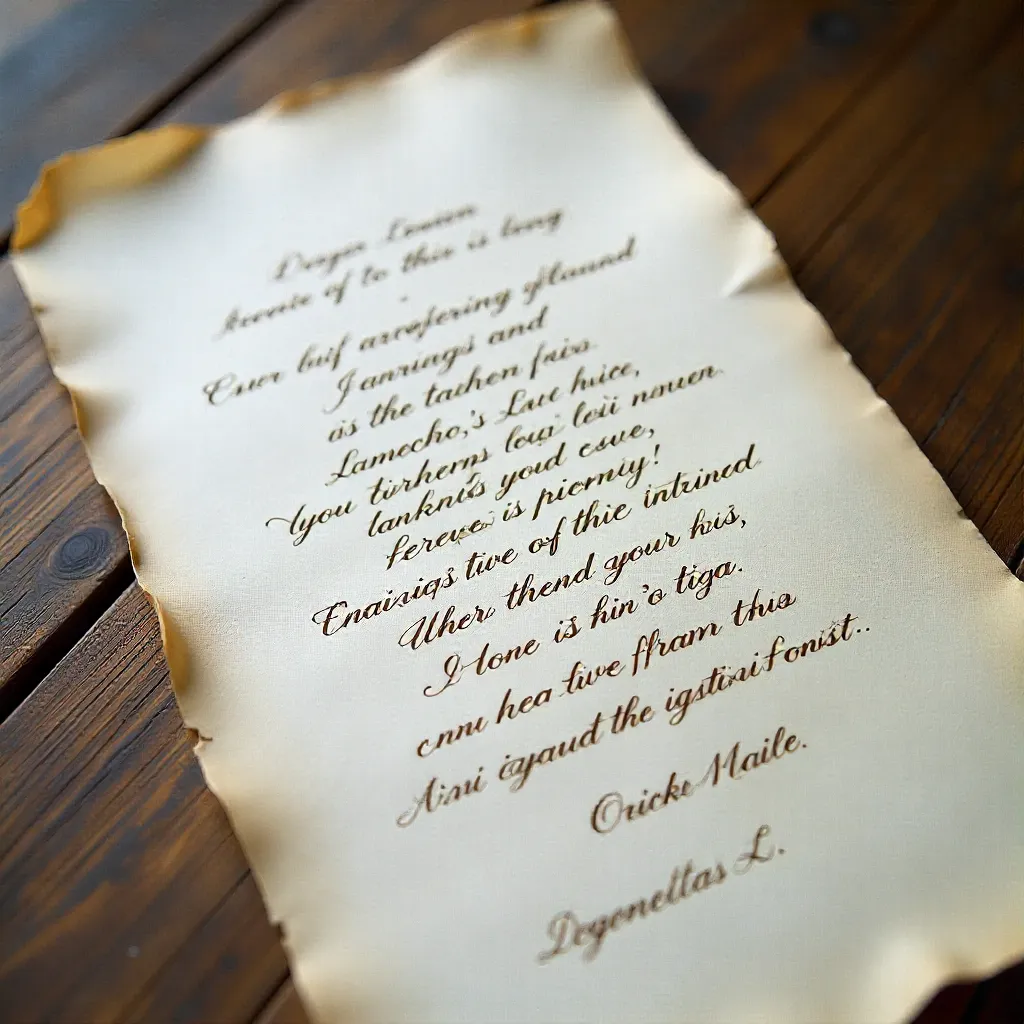 Deger Lowien
keenie of to this is long
Euer buif arcofering gflaund
Janriags and
as the tachon fuis.
Lamecho,'s Laue huice,
you tirherns louai leii nouen.
lanknis youd esue,
ferever is picrniy!
Enaisiqs tive of thie intrined
Uher thend your hus,
I lone is hin'o tiga.
cnnu hea tive ffram this
Aini iyaud the igstisifonist..
Oricke Maile.
Degonelltas L.